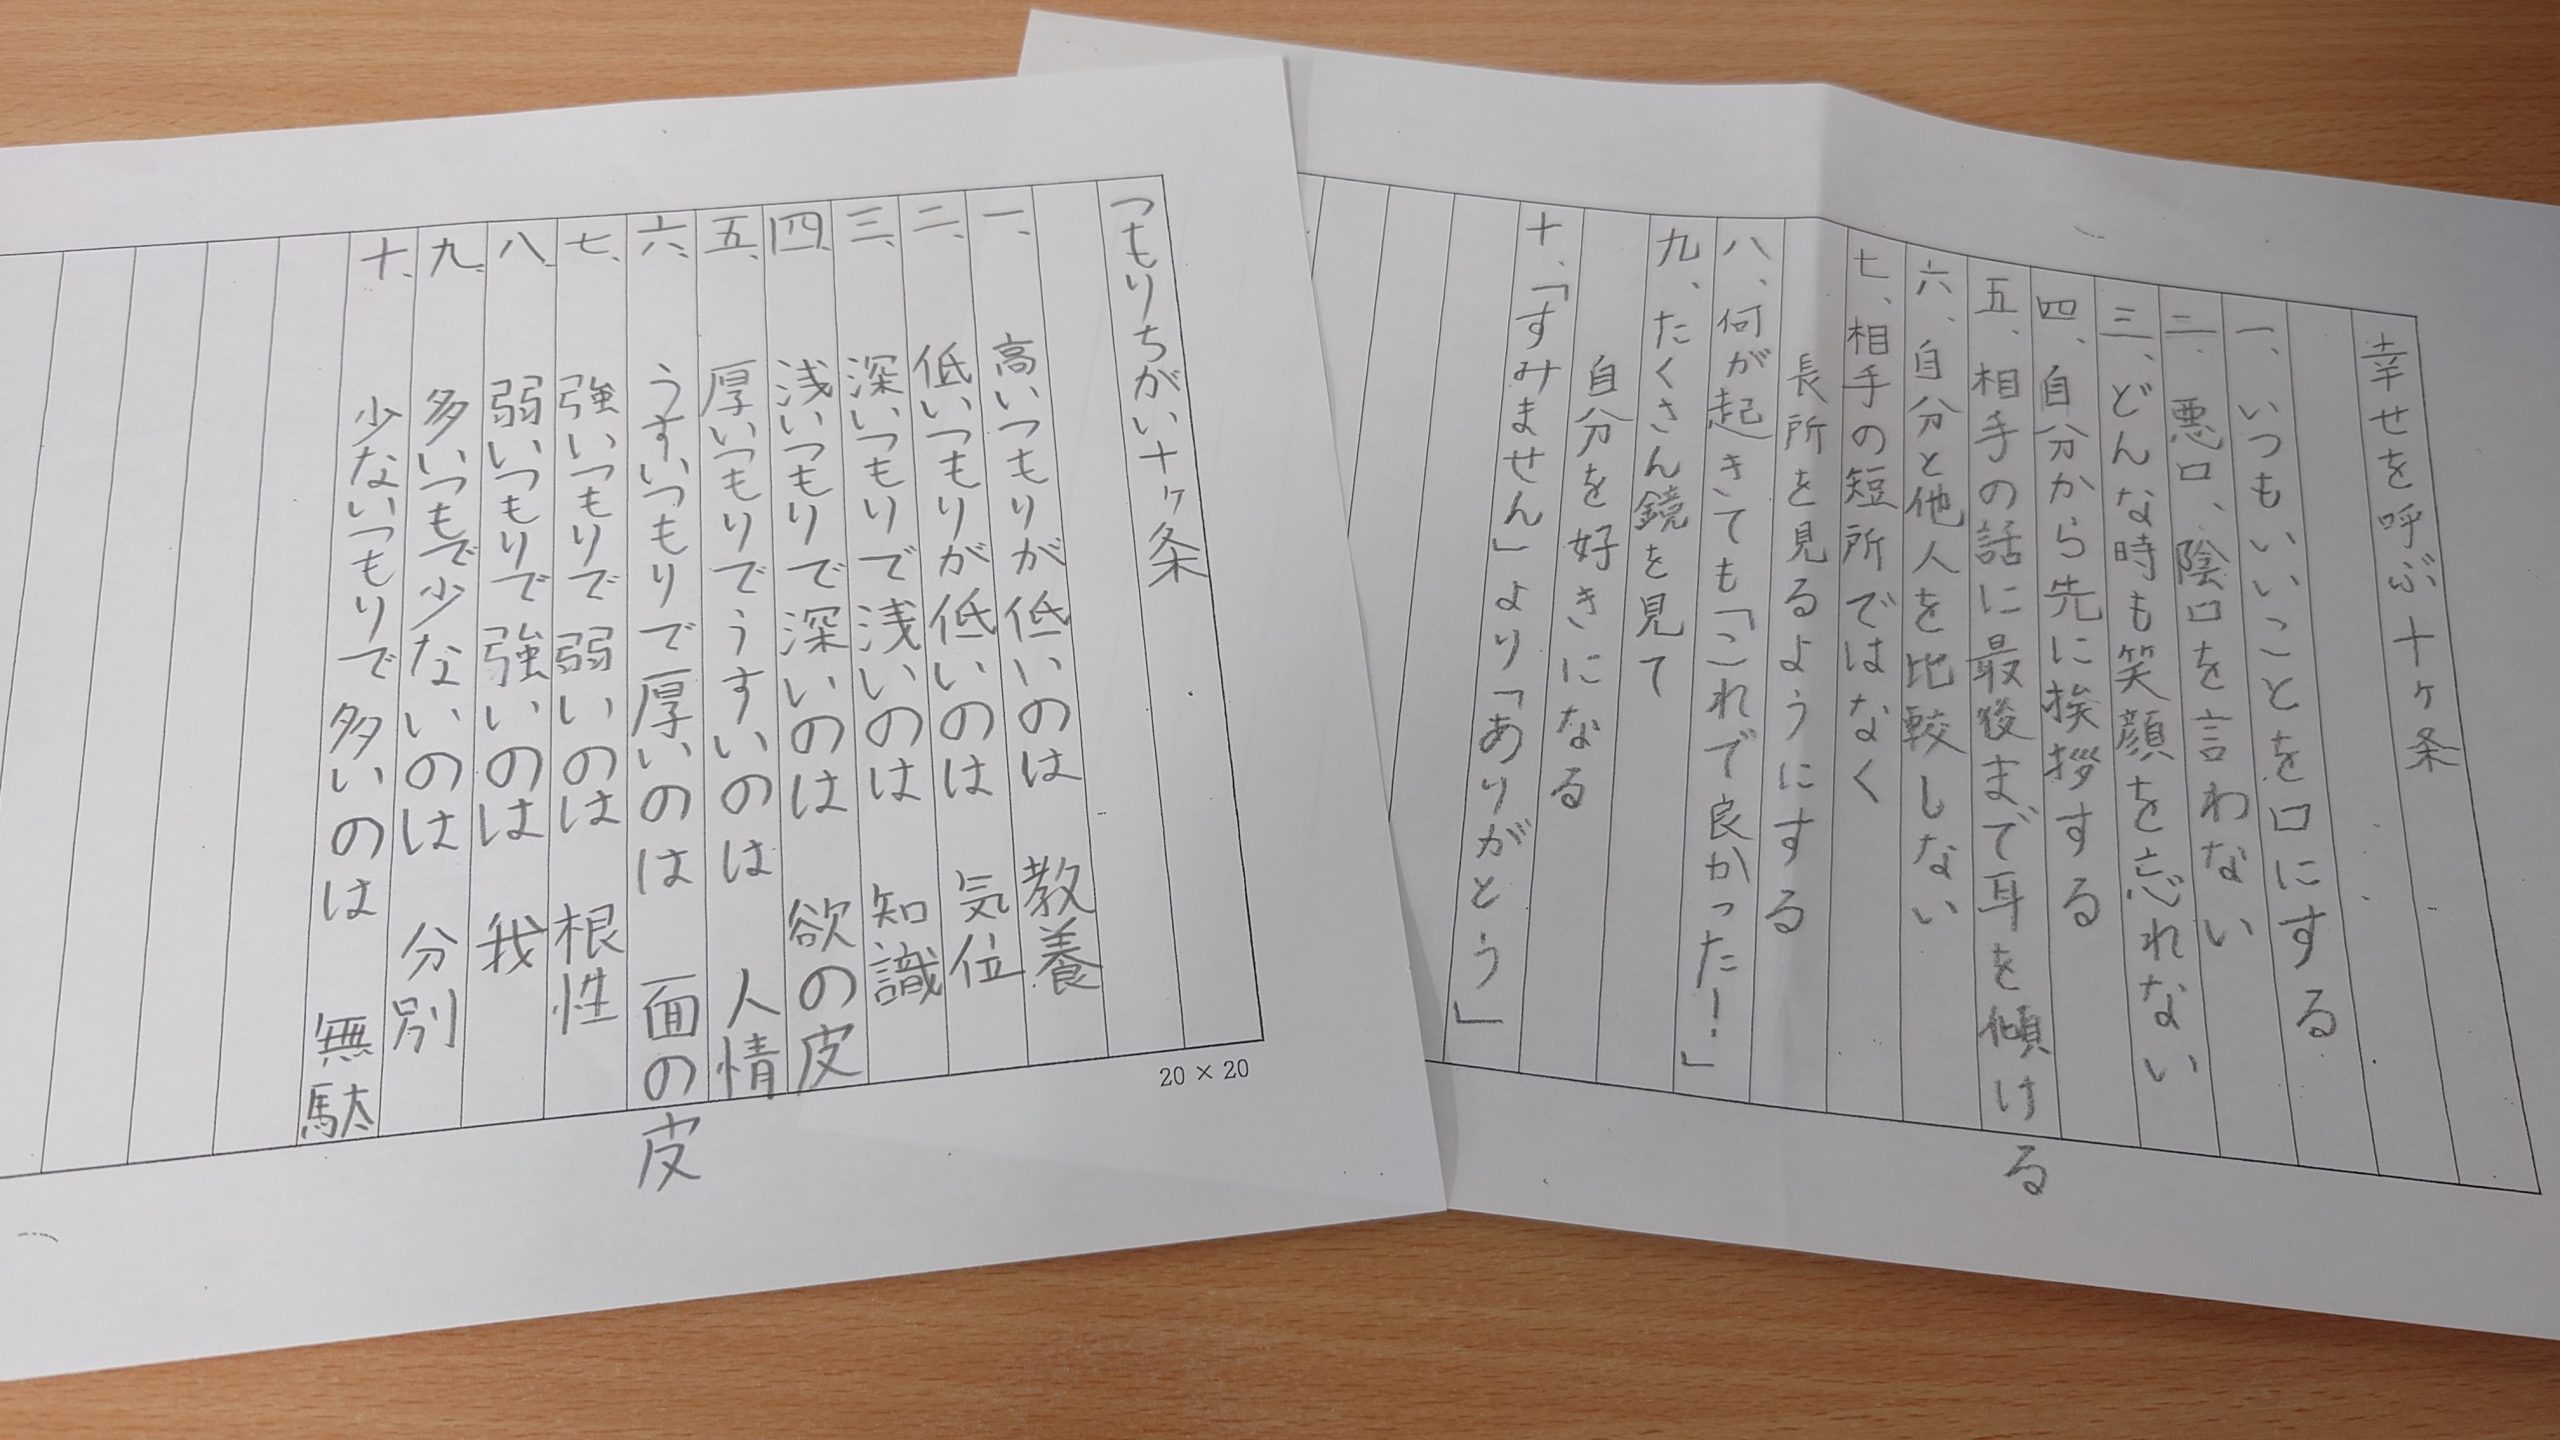 幸せを呼ぶ十ヶ条
一、いつもいいことを口にする
二、悪口、陰口を言わない
三、どんな時も笑顔を忘れない
四、自分から先に挨拶する
五、相手の話に最後まで耳を傾ける
六、自分と他人を比較しない
七、相手の短所ではなく
長所を見るようにする
八、何が起きても「これで良かった!」
九、たくさん鏡を見て
自分を好きになる
十、「すみません」より「ありがとう」
つもりちがい十ヶ条
一、高いつもりが低いのは 教養
二、低いつもりが低いのは 気位
三、深いつもりで浅いのは 知識
四、浅いつもりで深いのは 欲の皮
五、厚いつもりでうすいのは 人情
六、うすいつもりで厚いのは 面の皮
七、強いつもりで弱いのは 根性
八、弱いつもりで強いのは 我
九、多いつもで少ないのは 分別
十、少ないつもりで多いのは 無駄
20×20